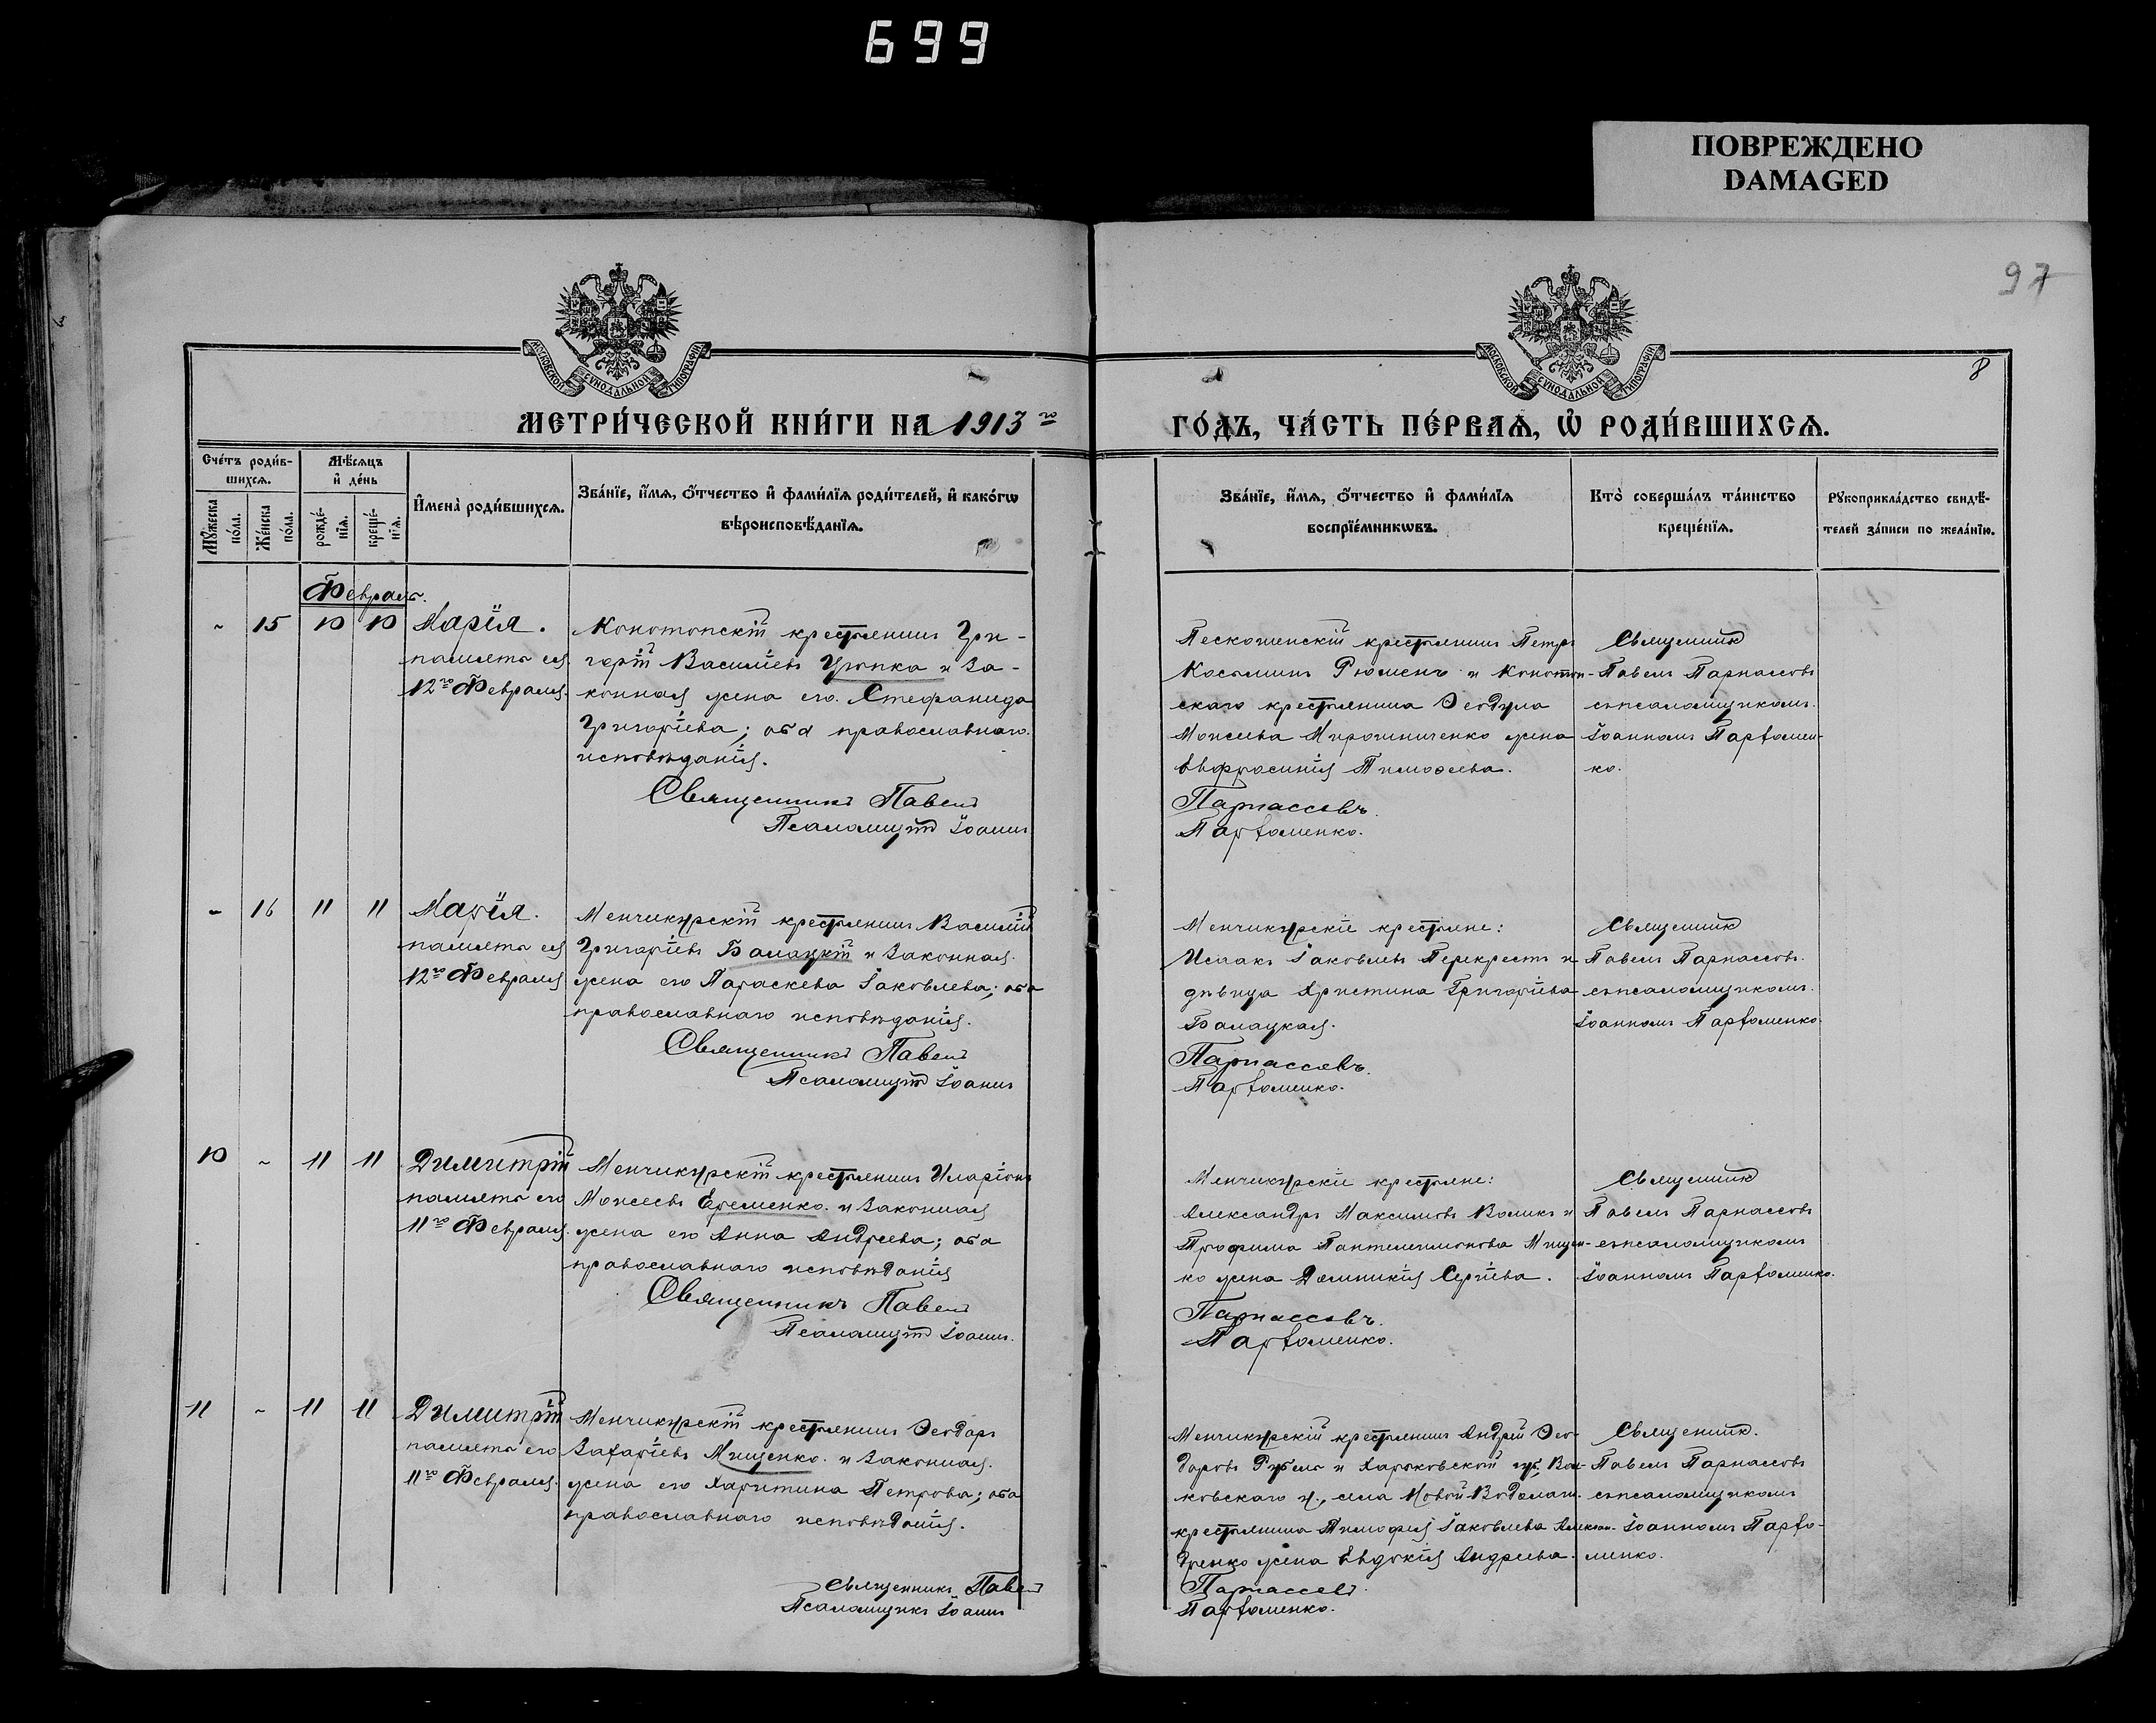 699
ПОВРЕЖДЕНО
DAMAGED
97
8
МОСКОВСКОЙ СѴНОДАЛЬНОЙ ТИПОГРАФІИ
МОСКОВСКОЙ СѴНОДАЛЬНОЙ ТИПОГРАФІИ
МЕТРИ́ЧЕСКОЙ КНИ́ГИ НА 1913 го
ГО́ДЪ, ЧА́СТЬ ПЕ́РВАѦ, Ѡ РОДИ́ВШИХСѦ.
Сче́тъ роди́в-
шихсѧ.
Мꙋ́жеска по́ла.
Же́нска по́ла.
Мѣ́сѧцъ
и҆ де́нь
рожде́-
нїѧ.
креще́-
нїѧ.
И҆мена̀ роди́вшихсѧ.
Зва́нїе, и҆́мѧ, ѻ҆́тчество и҆ фами́лїѧ роди́телей, и҆ како́гѡ
вѣроисповѣ́данїѧ.
Зва́нїе, и҆́мѧ, ѻ҆́тчество и҆ фами́лїѧ
воспрїе́мникѡвъ.
Кто̀ соверша́лъ та́инство
креще́нїѧ.
Рꙋкоприкла́дство свидѣ́-
телей за́писи по жела́нїю.
Февраль.
~ 15 10 10 Марія.
память ея
12го Февраля.
Конотопскій крестьянинъ Гри-
горій Васильевъ Цюпка и за-
конная жена его Стефанида
Григоріева; оба православнаго
исповѣданія.
Священникъ Павелъ
Псаломщикъ Іоаннъ
Пескошенскій крестьянинъ Петръ
Косьминъ Рюменъ и Конотоп-
скаго крестьянина Ѳеодула
Моисеева Мирошниченко жена
Евфросинія Тимоѳеева.
Парнассовъ.
Парфоменко.
Священникъ
Павелъ Парнассовъ
съ псаломщикомъ
Іоанномъ Парфомен-
ко.
~ 16 11 11 Марія.
память ея
12го Февраля
Менчикурскій крестьянинъ Василій
Григоріевъ Балацкій и законная
жена его Параскева Іаковлева; оба
православнаго исповѣданія.
Священникъ Павелъ
Псаломщикъ Іоаннъ
Менчикурскіе крестьяне:
Исаакъ Іаковлевъ Перекрестъ и
дѣвица Христина Григоріева
Балацкая.
Парнассовъ.
Парфоменко.
Священникъ
Павелъ Парнассовъ
съ псаломщикомъ
Іоанномъ Парфоменко.
10 ~ 11 11 Димитрій
память его
11го Февраля.
Менчикурскій крестьянинъ Иларіонъ
Моисеевъ Еременко и законная
жена его Анна Андреева; оба
православнаго исповѣданія
Священникъ Павелъ
Псаломщикъ Іоаннъ.
Менчикурскіе крестьяне:
Александръ Максимовъ Воликъ и
Трофима Пантелеимонова Мищен-
ко жена Домникія Сергіева.
Парнассовъ.
Парфоменко.
Священникъ
Павелъ Парнассовъ
съ псаломщикомъ
Іоанномъ Парфоменко.
11 ~ 11 11 Димитрій
память его
11го Февраля.
Менчикурскій крестьянинъ Ѳеодоръ
Захаріевъ Мищенко и законная
жена его Харитина Петрова; оба
православнаго исповѣданія.
Священникъ Павелъ
Псаломщикъ Іоаннъ
Менчикурскій крестьянинъ Андрей Ѳео-
доровъ и Харьковской губ, Вал-
ковскаго у., села Новой Водолаги
крестьянина Тимофея Іаковлева Алексан-
дренко жена Евдокія Андреева.
Парнассовъ.
Парфоменко.
Священникъ.
Павелъ Парнассовъ
съ псаломщикомъ
Іоанномъ Парфо-
менко.